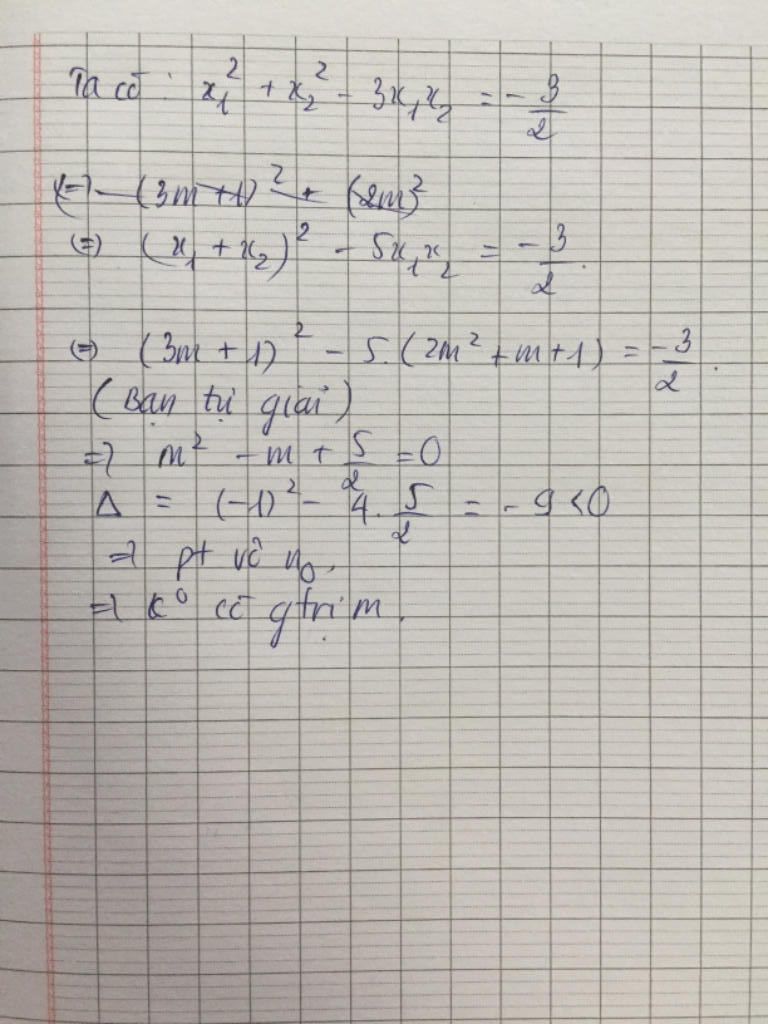 Ta có : x₁² + x₂² - 3x₁x₂ = - 3/2
(=) (3m + 1)² + (2m)²
(=) (x₁ + x₂)² - 5x₁x₂ = - 3/2.
(=) (3m + 1)² - 5.(2m² + m + 1) = - 3/2.
(Bạn tự giải)
=> m² - m + 5/2 = 0
Δ = (-1)² - 4. 5/2 = - 9 < 0
=> pt vô n₀.
=> k⁰ có gtrị m.